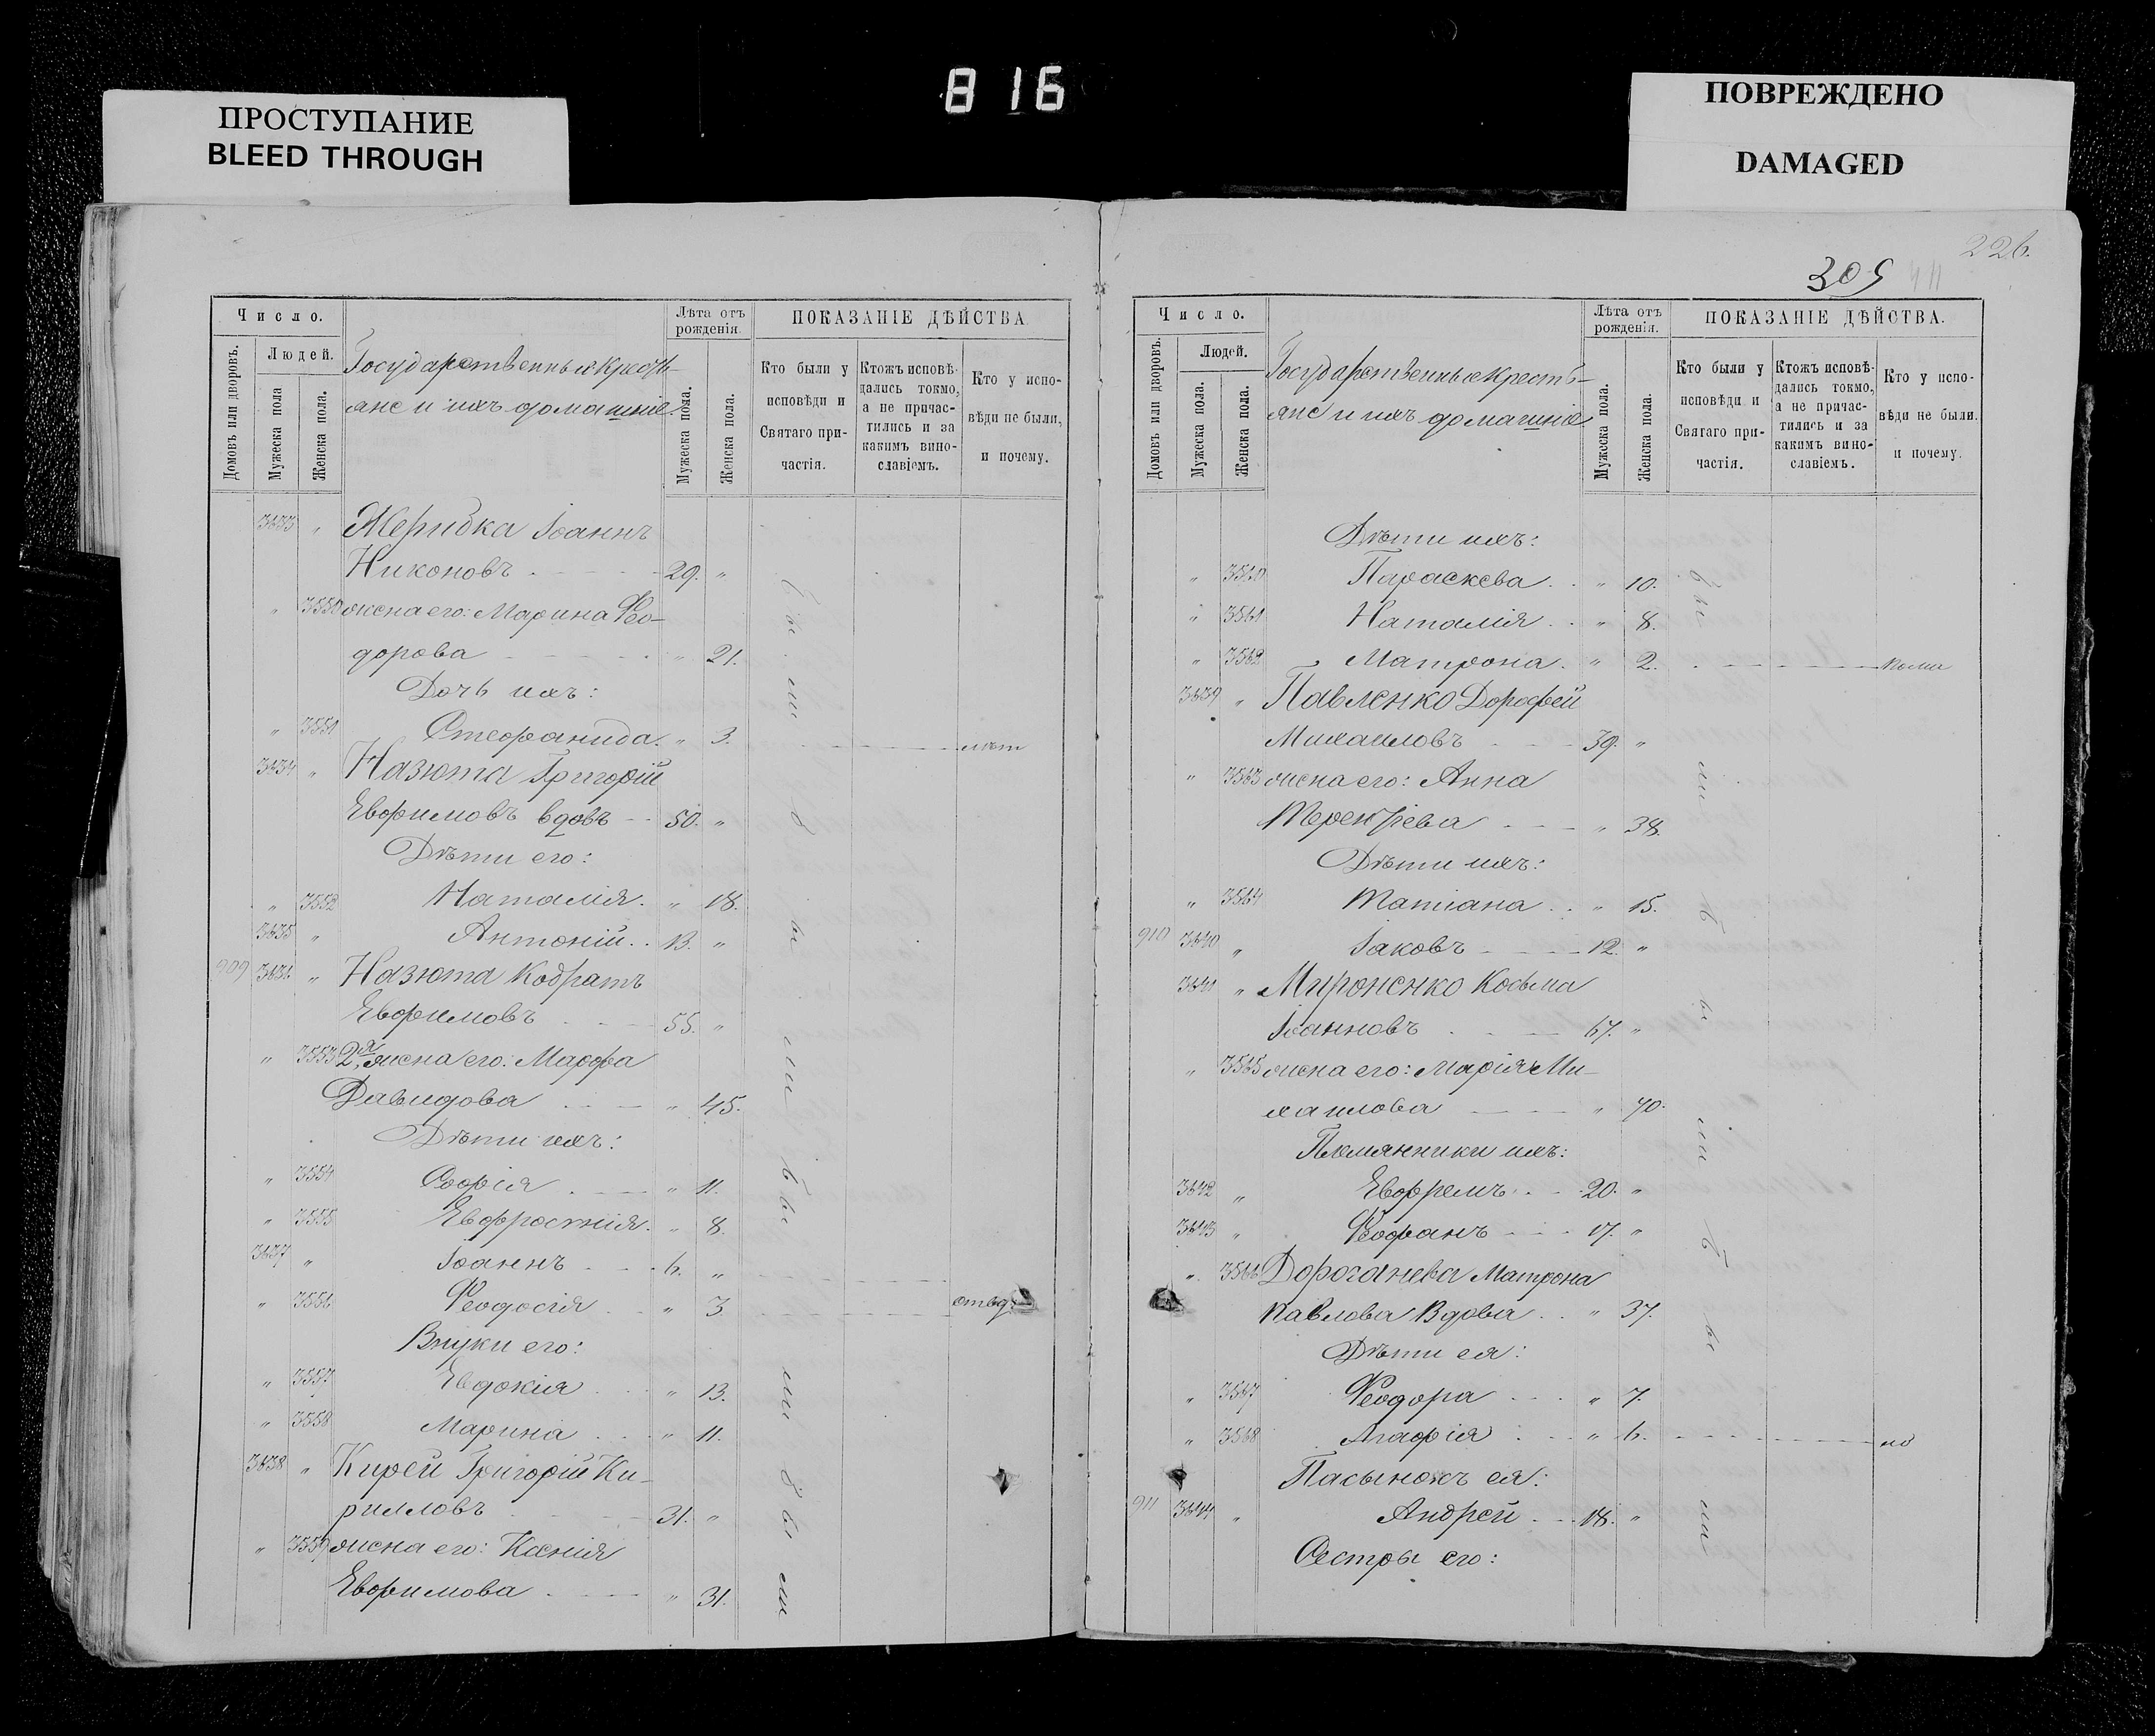 816
ПРОСТУПАНИЕ
BLEED THROUGH
ПОВРЕЖДЕНО
DAMAGED
Число.
Людей.
Домовъ или дворовъ.
Мужеска пола
Женска пола.
Государственные кресть-
яне и ихъ домашніе
Лѣта отъ рожденія.
Мужеска пола.
Женска пола.
ПОКАЗАНІЕ ДѢЙСТВА
Кто были у исповѣди и Святаго при-частія.
Ктожъ исповѣ-дались токмо, а не причас-тились и за какимъ вино-славіемъ.
Кто у испо-вѣди не были, и почему.
3633 " Жеридка Іоаннъ
Никоновъ 29. "
" 3550 жена его: Марина Ѳео-
дорова " 21.
Дочь ихъ:
" 3551 Стефанида. " 3.
3634 " Назюта Григорій
Евфимовъ вдовъ 50. "
Дѣти его:
" 3552 Наталія. " 18.
3635 " Антоній. 13. "
909 3636 " Назюта Кодратъ
Евфимовъ 55. "
" 3553 2я жена его: Марфа
Давидова " 45.
Дѣти ихъ:
" 3554 Софія " 11.
" 3555 Евфросинія. " 8.
3637 " Іоаннъ 6. "
" 3556 Ѳеодосія " 3.
Внуки его:
" 3557 Евдокія " 13.
" 3558 Марина " 11.
3638 " Кирей Григорій Ки-
рилловъ 31. "
" 3559 жена его: Ксенія
Евфимова " 31.
226.
305
Число.
Людей.
Домовъ или дворовъ.
Мужеска пола.
Женска пола.
Государственные кресть-
яне и ихъ домашніе
Лѣта отъ рожденія.
Мужеска пола.
Женска пола.
ПОКАЗАНІЕ ДѢЙСТВА.
Кто были у исповѣди и Святаго при-частія.
Ктожъ исповѣ-дались токмо, а не причас-тились и за какимъ вино-славіемъ.
Кто у испо-вѣди не были. и почему.
Дѣти ихъ:
" 3560 Параскева " 10.
" 3561 Наталія " 8.
" 3562 Матрона. " 2.
3639 " Павленко Дорофей
Михаиловъ 39. "
" 3563 жена его: Анна
Терентіева " 38.
Дѣти ихъ:
" 3564 Татіана " 15.
910 3640 " Іаковъ 12. "
3641 " Мироненко Косьма
Іоанновъ 67. "
" 3565 жена его: Марія Ми-
хаилова " 70.
Племянники ихъ:
3642 " Евфремъ 20. "
3643 " Ѳеофанъ 17. "
" 3566 Дороганева Матрона
Павлова Вдова " 37.
Дѣти ея:
" 3567 Ѳеодора " 7.
" 3568 Агафія " 6.
Пасынокъ ея:
911 3644 " Андрей 18. "
Сестры его: